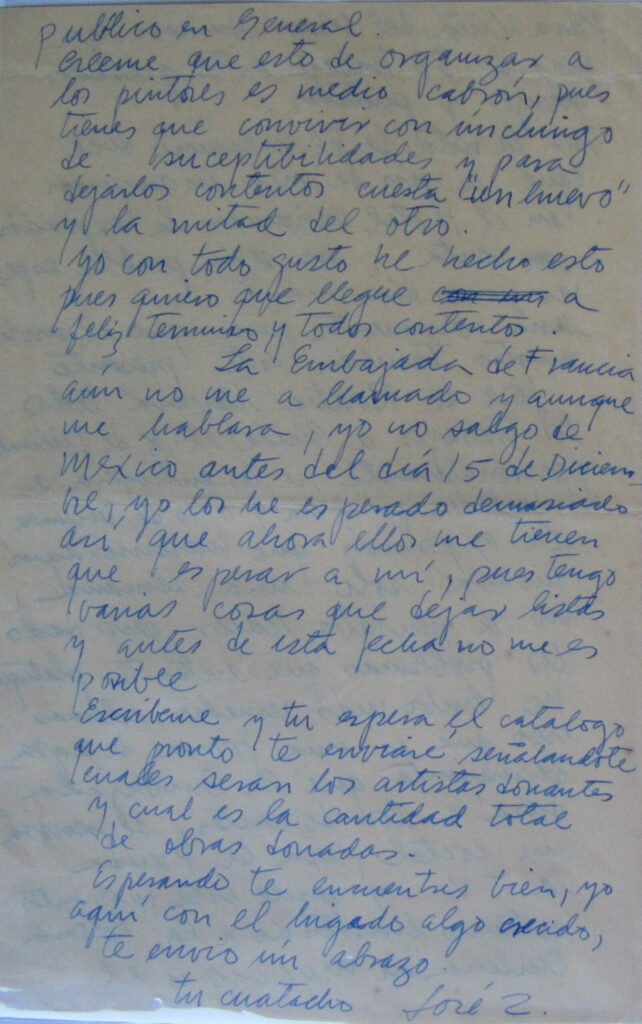 publico en General.
Creeme que esto de organizar a
los pintores es medio cabrón, pues
tienes que convivir con unchingo
de suceptibilidades y para
dejarlos contentos cuesta "un huevo"
y la mitad del otro.
Yo con todo gusto he hecho esto
pues quiero que llegue a
feliz termino y todos contentos.
La Embajada de Francia
aún no me a llamado y aunque
me hablara, yo no salgo de
México antes del día 15 de Diciem
bre, yo los he esperado demasiado
así que ahora ellos me tienen
que esperar a mí, pues tengo
varias cosas que dejar listas
y antes de esta fecha no me es
posible
Escribeme y tu espera el catalogo
que pronto te enviaré, señalandote
cuales seran los artistas donantes
y cual es la cantidad total
de obras donadas.
Esperando te encuentres bien, yo
aquí con el higado algo crecido,
te envio un abrazo.
tu cuatacho José Z.